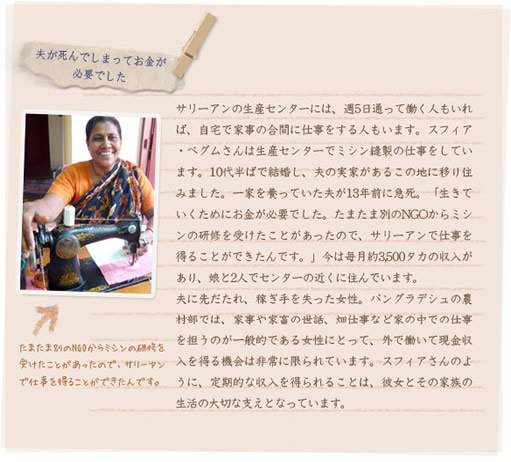 夫が死んでしまってお金が
必要でした
サリーアンの生産センターには、週5日通って働く人もいれ
ば、自宅で家事の合間に仕事をする人もいます。スフィア
・ベグムさんは生産センターでミシン縫製の仕事をしてい
ます。10代半ばで結婚し、夫の実家があるこの地に移り住
みました。一家を養っていた夫が13年前に急死。「生きて
いくためにお金が必要でした。たまたま別のNGOからミシ
ンの研修を受けたことがあったので、サリーアンで仕事を
得ることができたんです。」今は毎月約3,500タカの収入が
あり、娘と2人でセンターの近くに住んでいます。
夫に先だたれ、稼ぎ手を失った女性。バングラデシュの農
村部では、家事や家畜の世話、畑仕事など家の中での仕事
を担うのが一般的である女性にとって、外で働いて現金収
入を得る機会は非常に限られています。スフィアさんのよ
うに、定期的な収入を得られることは、彼女とその家族の
生活の大切な支えとなっています。
たまたま別のNGOからミシンの研修を
受けたことがあったので、サリーアン
で仕事を得ることができたんです。